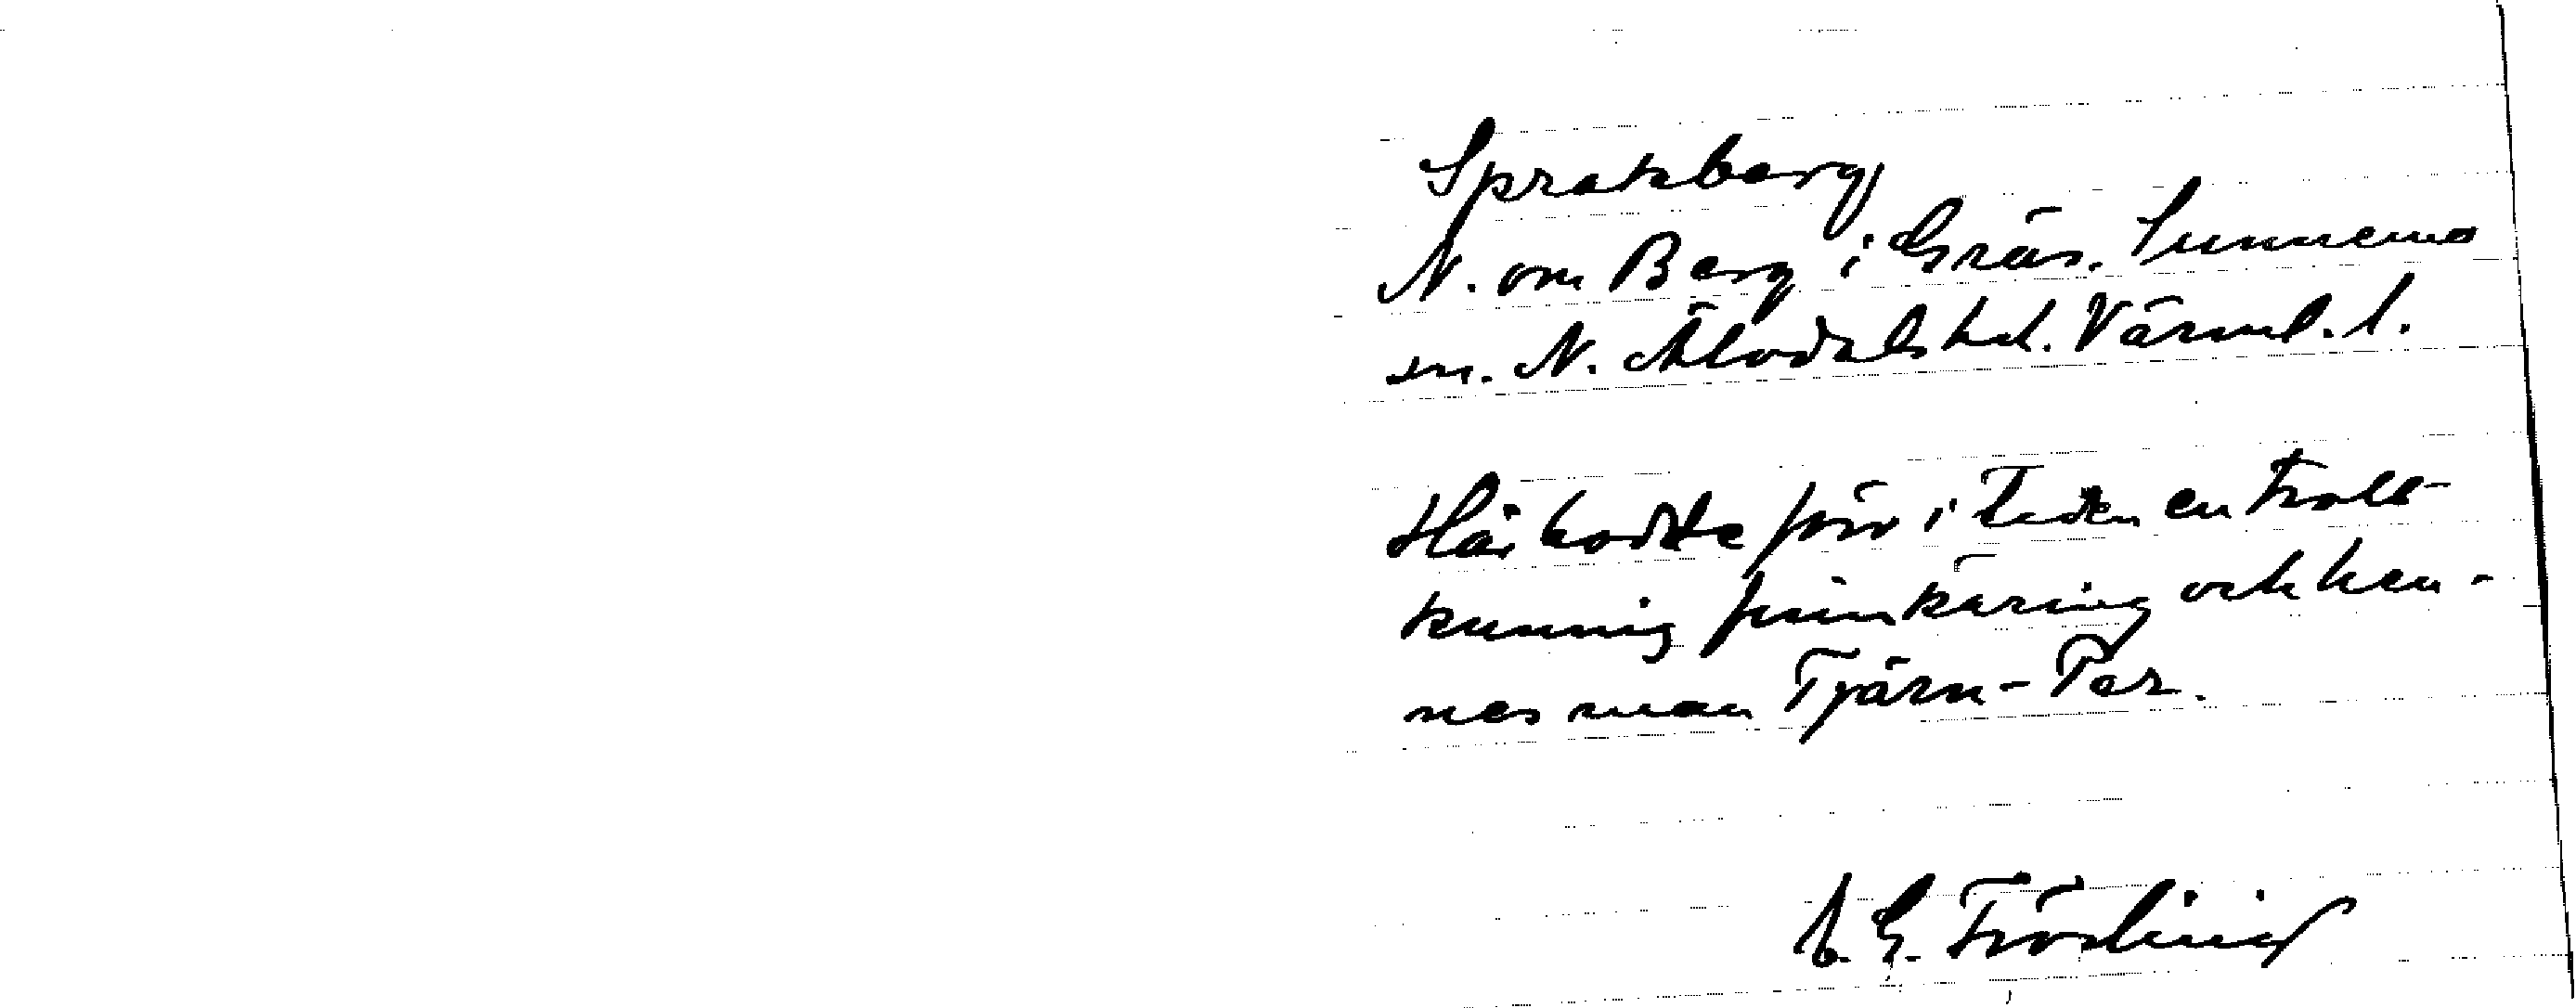 Spratkberg
N. om Berg i Gräs. Sunnemo
sn. N. Älvdals hd. Värml. l.
Här bodde förr i tiden en troll-
kunnig finnkäring och hen-
nes man Tjärn-Per.